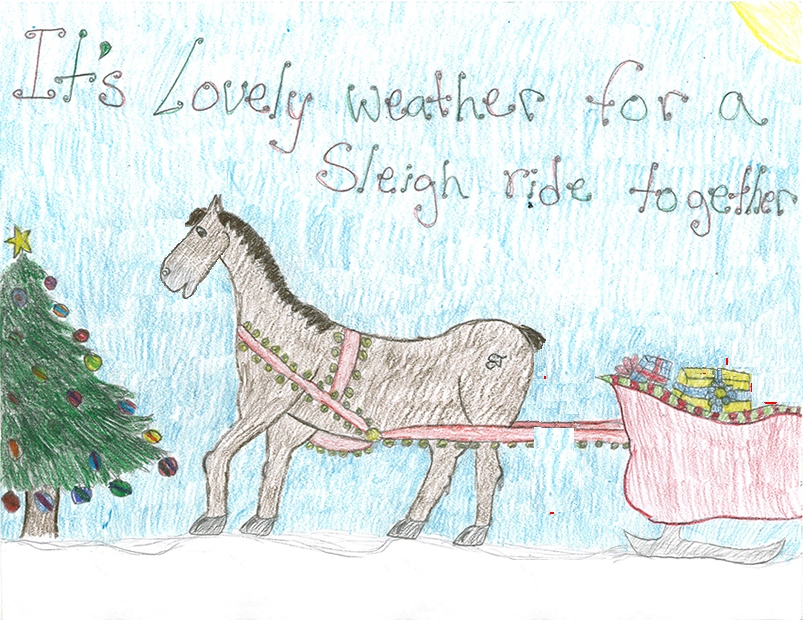 It's Lovely weather for a
Sleigh ride together